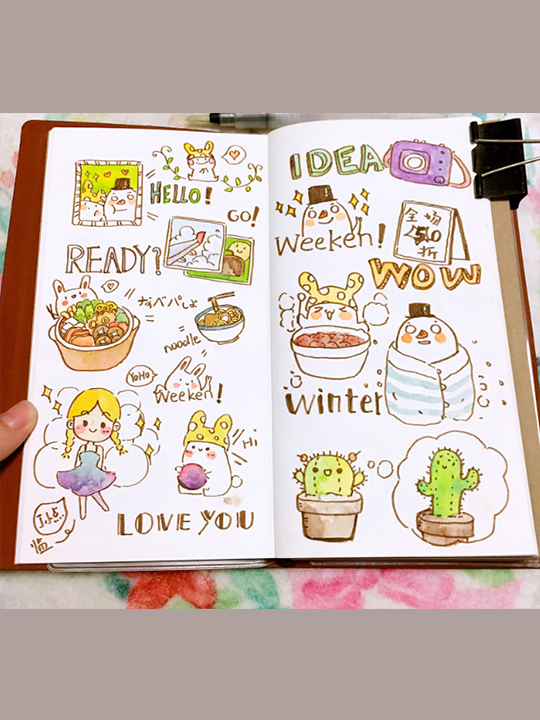 HELLO!
GO!
READY?
なべパしよ
noodle
YoHo
Weeken!
Hi
LOVE YOU
IDEA
Weeken!
全场
50
折
WOW
Winter